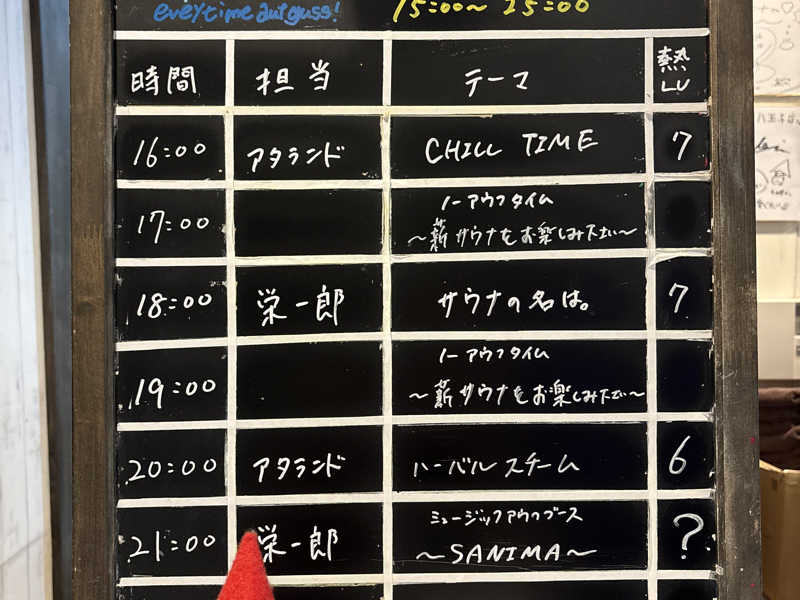 every time aufguss!
15:00~ 25:00
時間 担当 テーマ 熱LV
16:00 アタランド CHILL TIME 7
17:00 ノーアウフタイム
~薪サウナをお楽しみ下さい~
18:00 栄一郎 サウナの名は。 7
19:00 ノーアウフタイム
~薪サウナをお楽しみ下さい~
20:00 アタランド ハーバルスチーム 6
21:00 栄一郎 ミュージックアウフブース
~SANIMA~ ?